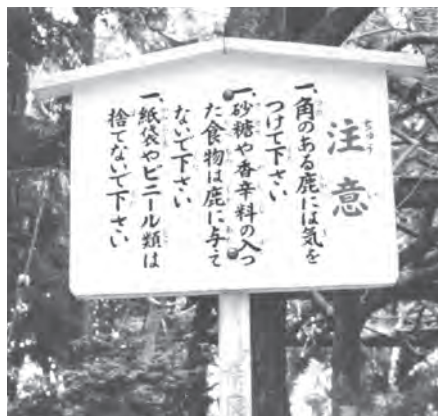 注意
一、角のある鹿には気を
つけて下さい
一、砂糖や香辛料の入っ
た食物は鹿に与え
ないで下さい
一、紙袋やビニール類は
捨てないで下さい